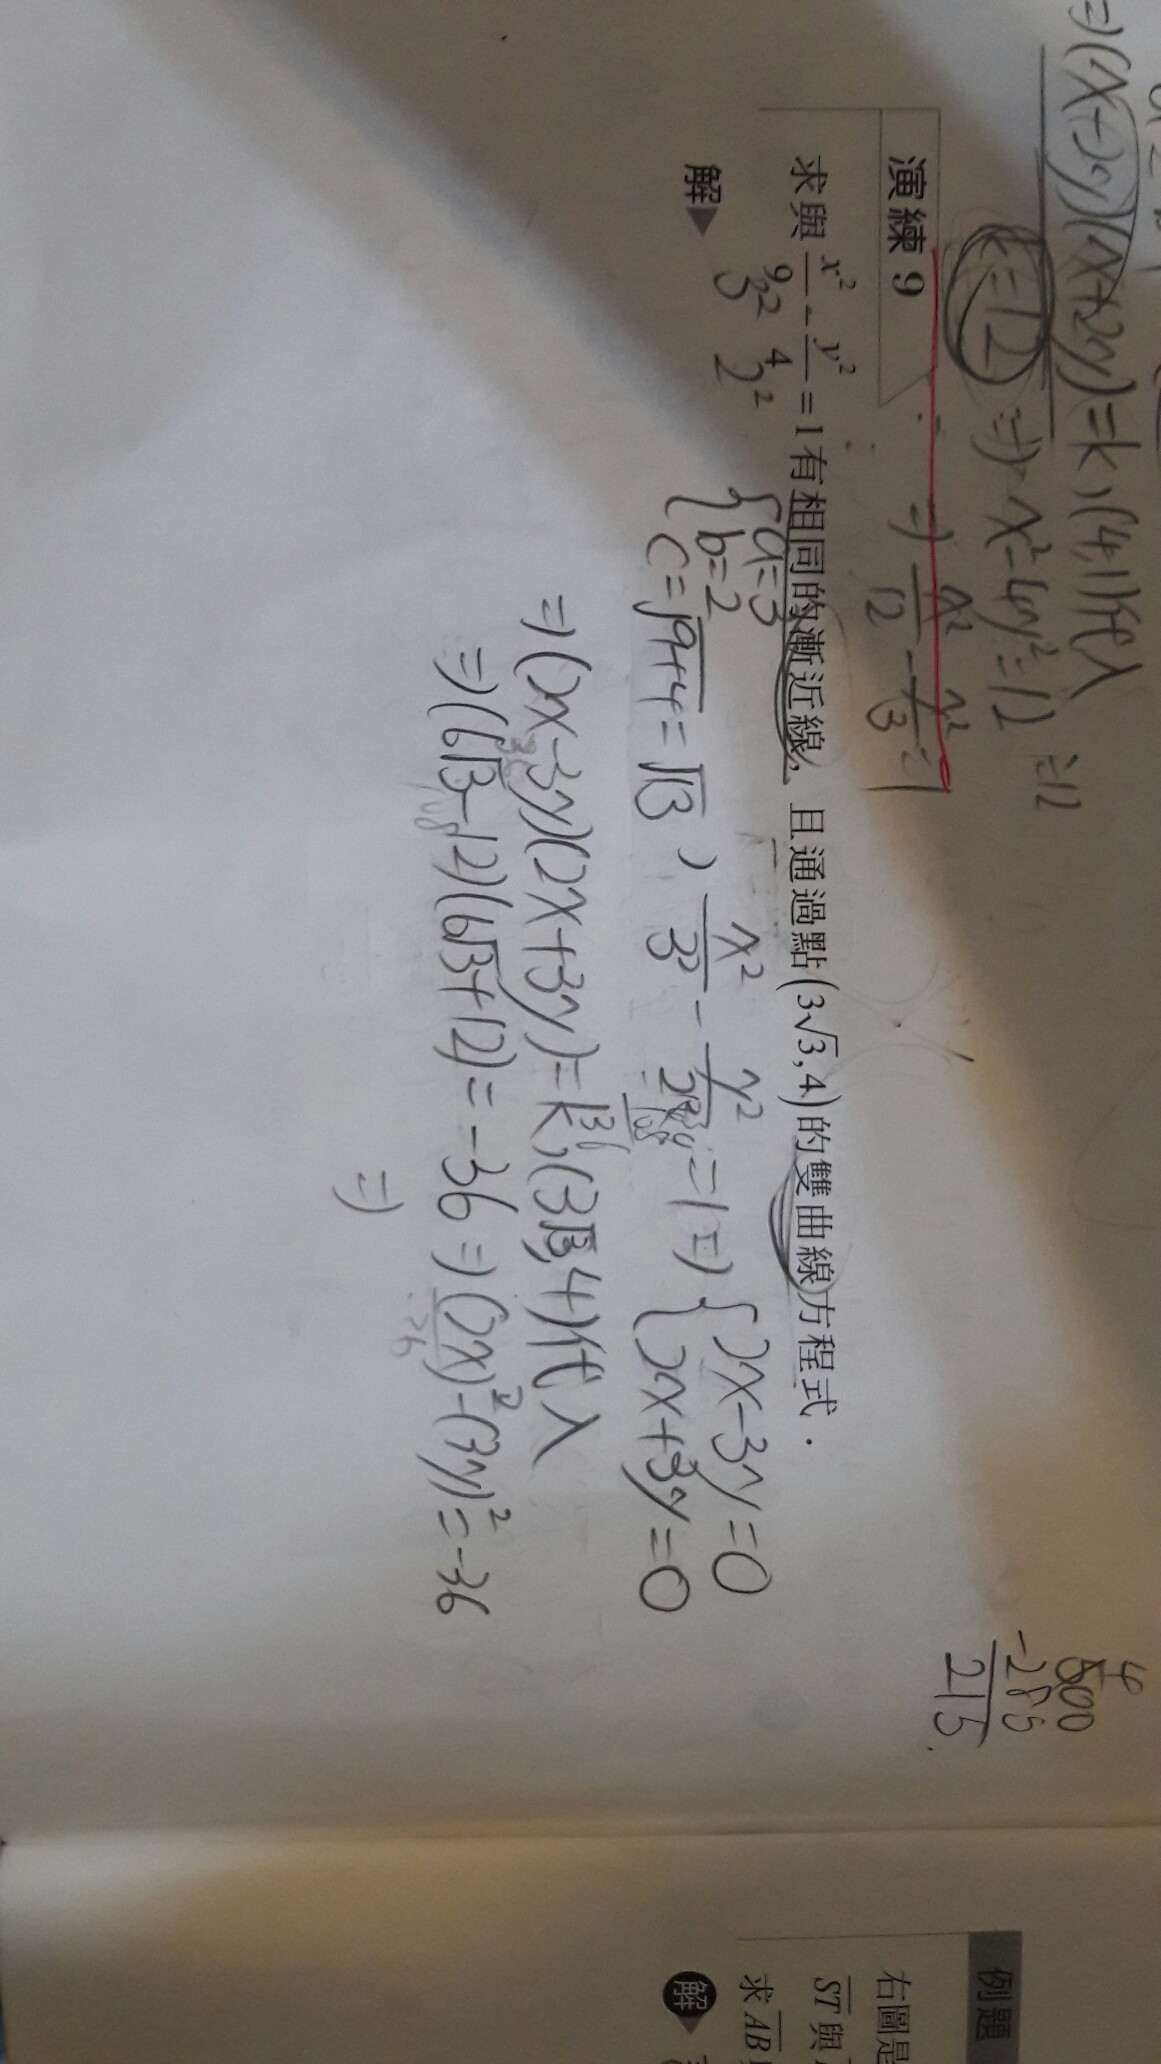 =)(x-2y)(x+2y)=k,(4,1)代入
k=12 => x²-4y²=12
=) x²/12 - y²/3 = 1
演練 9
求與 x²/9 - y²/4 = 1 有相同的漸近線,且通過點(3√3,4)的雙曲線方程式.
3² 2²
解▶
{a=3
b=2
c=√9+4=√13 , x²/3² - y²/2² = 1 =) {2x-3y=0
2x+3y=0
=)(2x-3y)(2x+3y)=k,(3√3,4)代入
=)(6√3-12)(6√3+12)=-36 =)(2x)²-(3y)²=-36
=)
500
-285
215
例題
右圖是
ST與
求AB
解